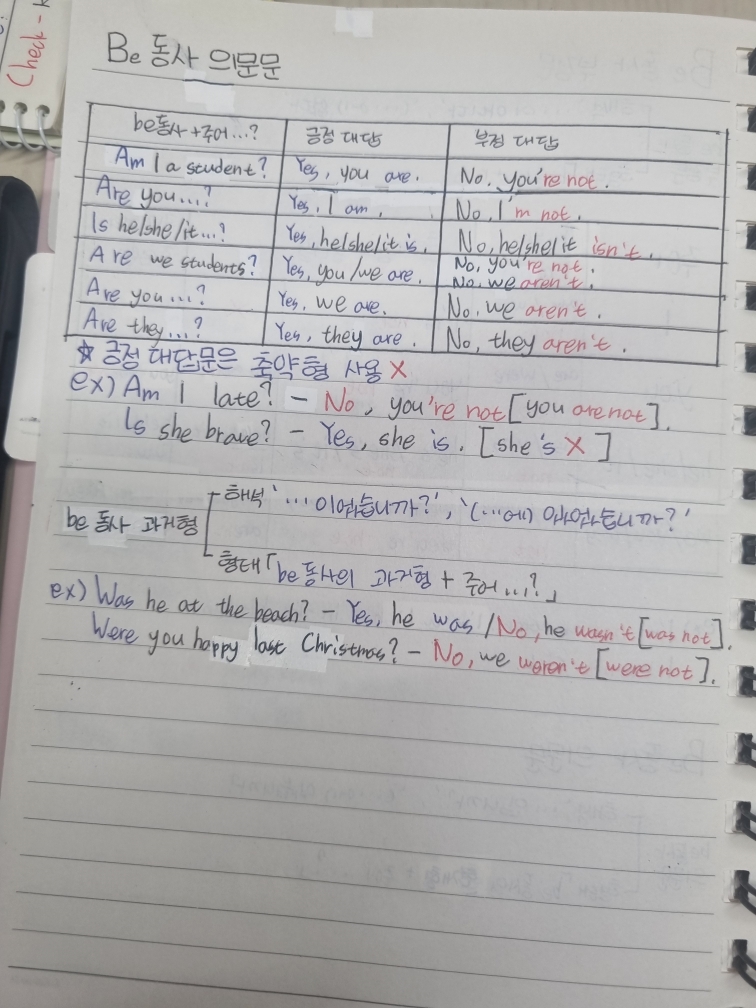 Check -
Be 동사 의문문
be동사+주어...? 긍정 대답 부정 대답
Am I a student? Yes, you are. No, you're not.
Are you...? Yes, I am. No, I'm not.
Is he/she/it...? Yes, he/she/it is. No, he/she/it isn't.
Are we students? Yes, you/we are. No, you're not.
No, we aren't.
Are you...? Yes, we are. No, we aren't.
Are they...? Yes, they are. No, they aren't.
☆ 긍정 대답문은 축약형 사용 X
ex) Am I late? - No, you're not [you are not].
Is she brave? - Yes, she is. [she's X]
해석 '...이었습니까?', '(...에) 있었습니까?'
be 동사 과거형
형태 「be동사의 과거형 + 주어...?」
ex) Was he at the beach? - Yes, he was / No, he wasn't [was not].
Were you happy last Christmas? - No, we weren't [were not].